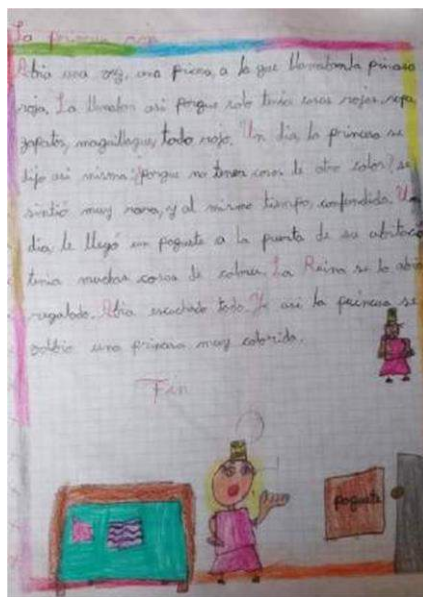 La princesa roja
Abia una vez, una princesa, a la que llamaban la princesa
roja. La llamaban asi porque solo tenia cosas rojas, ropa,
zapatos, maquillaque, todo rojo. Un dia, la princesa se
dijo asi misma: ¿porque no tener cosas de otro color? se
sintió muy rara, y al mismo tiempo, confundida. Un
dia le llegó un poquete a la puerta de su
tenia muchas cosas de colores. La Reina se lo abia
regalado. Abia escuchado todo. Y asi la princesa se
volbio una princesa muy colorida.
Fin
poquete